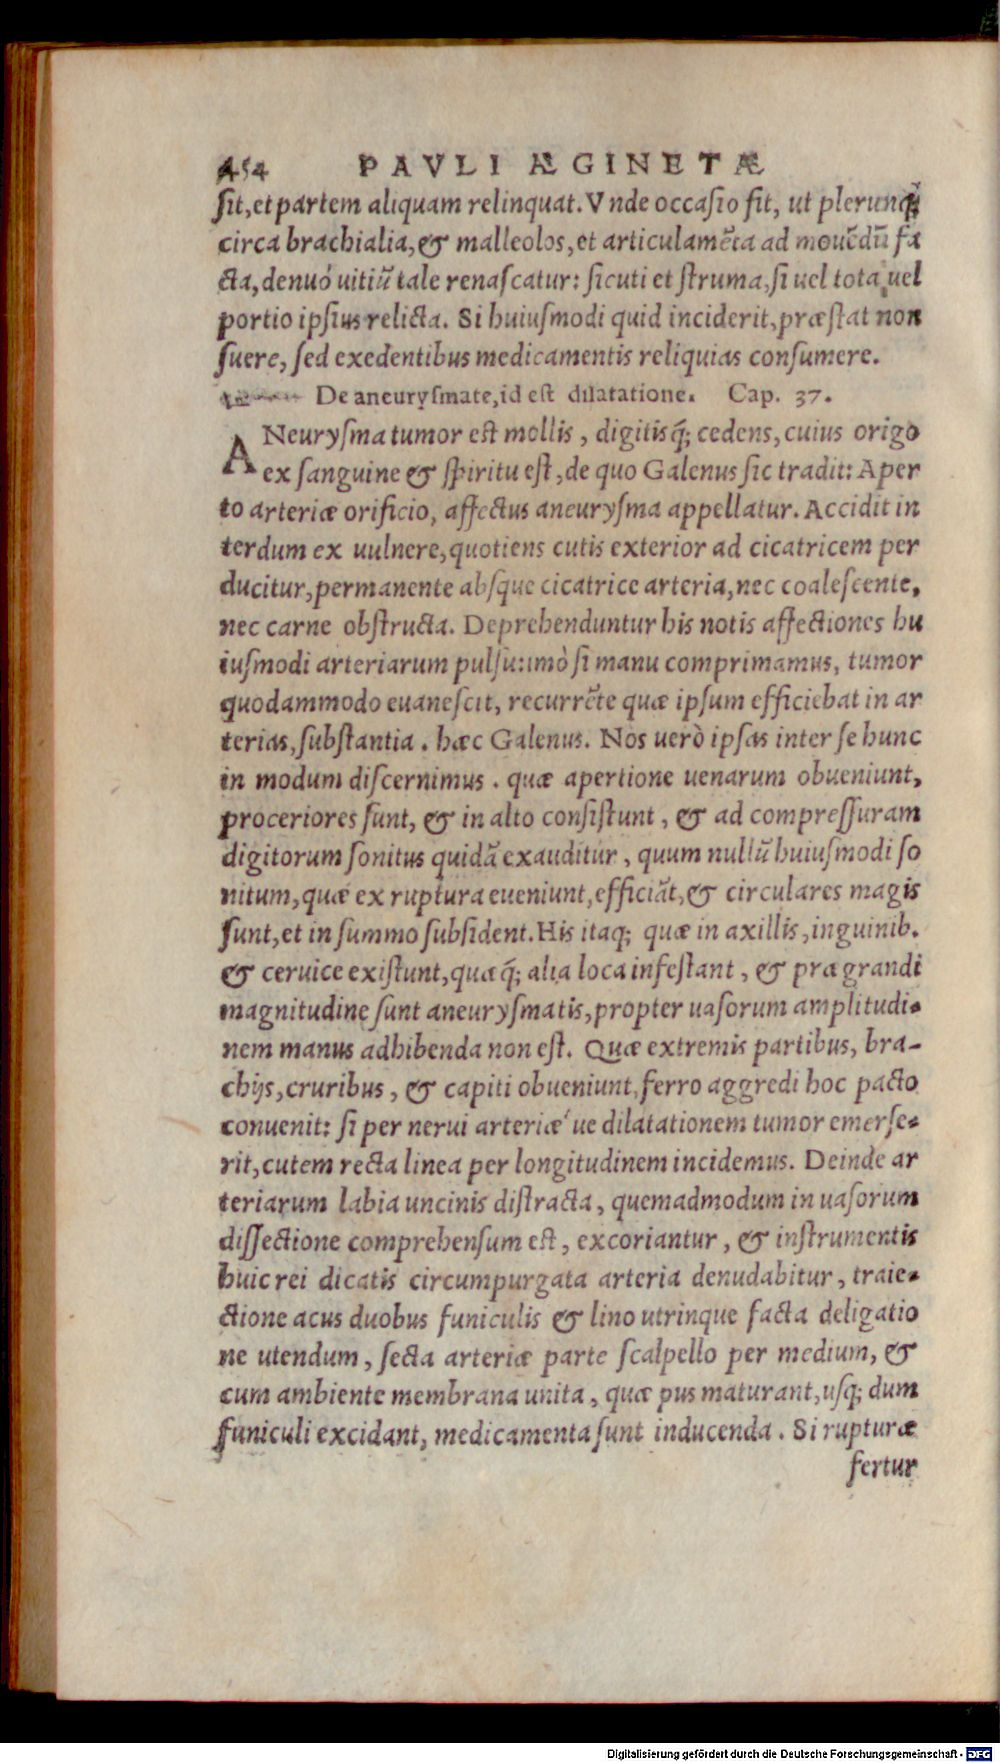 454 PAVLI ÆGINETÆ
ſit, et partem aliquam relinquat. Vnde occaſio fit, ut plerunq́;
circa brachialia, & malleolos, et articulamẽta ad mouẽdũ fa
cta, denuó uitiũ tale renaſcatur: ſicuti et ſtruma, ſi uel tota, uel
portio ipſius relicta. Si huiuſmodi quid inciderit, præſtat non
ſuere, ſed exedentibus medicamentis reliquias conſumere.
De aneuryſmate, id est dilatatione. Cap. 37.
ANeuryſma tumor eſt mollis, digitisq́; cedens, cuius origo
ex ſanguine & ſpiritu eſt, de quo Galenus ſic tradit: Aper
to arteriæ orificio, affectus aneuryſma appellatur. Accidit in
terdum ex uulnere, quotiens cutis exterior ad cicatricem per
ducitur, permanente abſque cicatrice arteria, nec coaleſcente,
nec carne obſtructa. Deprehenduntur his notis affectiones hu
iuſmodi arteriarum pulſu: imò ſi manu comprimamus, tumor
quodammodo euaneſcit, recurrẽte quæ ipſum efficiebat in ar
terias, ſubſtantia. hæc Galenus. Nos uerò ipſas inter ſe hunc
in modum diſcernimus. quæ apertione uenarum obueniunt,
proceriores ſunt, & in alto conſiſtunt, & ad compreſſuram
digitorum ſonitus quidã exauditur, quum nullũ huiuſmodi ſo
nitum, quæ ex ruptura eueniunt, efficiãt, & circulares magis
ſunt, et in ſummo ſubſident. His itaq; quæ in axillis, inguinib.
& ceruice exiſtunt, quæq́; alia loca infeſtant, & prægrandi
magnitudine ſunt aneuryſmatis, propter uaſorum amplitudi-
nem manus adhibenda non eſt. Quæ extremis partibus, bra-
chijs, cruribus, & capiti obueniunt, ferro aggredi hoc pacto
conuenit: ſi per nerui arteriæ´ue dilatationem tumor emerſe-
rit, cutem recta linea per longitudinem incidemus. Deinde ar
teriarum labia uncinis diſtracta, quemadmodum in uaſorum
diſſectione comprehenſum eſt, excoriantur, & inſtrumentis
huic rei dicatis circumpurgata arteria denudabitur, traie-
ctione acus duobus funiculis & lino utrinque facta deligatio
ne utendum, ſecta arteriæ parte ſcalpello per medium, &
cum ambiente membrana unita, quæ pus maturant, uſq; dum
funiculi excidant, medicamenta ſunt inducenda. Si rupturæ
fertur
Digitalisierung gefördert durch die Deutsche Forschungsgemeinschaft - DFG